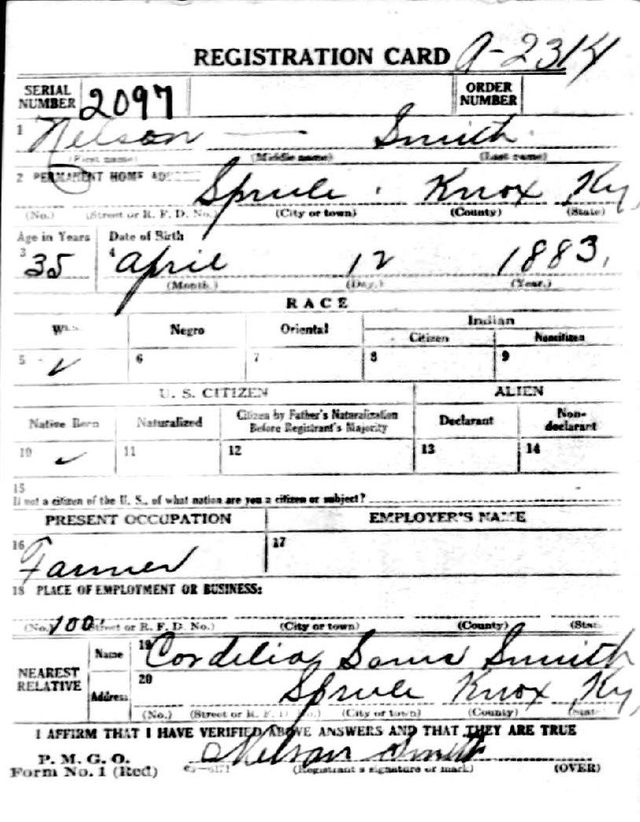 REGISTRATION CARD A-2314
SERIAL NUMBER 2097 ORDER NUMBER
1 Nelson — Smith
(First name) (Middle name) (Last name)
2 PERMANENT HOME ADDRESS Sprule Knox Ky,
(No.) (Street or R. F. D. No.) (City or town) (County) (State)
Age in Years Date of Birth
3 35 4 April 12 1883.
(Month.) (Day.) (Year.)
RACE
Negro Oriental Indian
Citizen Noncitizen
5 ✓ 6 7 8 9
U. S. CITIZEN ALIEN
Native Born Naturalized Citizen by Father's Naturalization Before Registrant's Majority Declarant Non-declarant
10 ✓ 11 12 13 14
15
If not a citizen of the U. S., of what nation are you a citizen or subject?
PRESENT OCCUPATION EMPLOYER'S NAME
16 Farmer 17
18 PLACE OF EMPLOYMENT OR BUSINESS:
(No.) 100. (Street or R. F. D. No.) (City or town) (County) (State
NEAREST RELATIVE Name 19 Cordelia Sams Smith
Address 20 Sprule Knox Ky,
(No.) (Street or R. F. D. No.) (City or town) (County) (State
I AFFIRM THAT I HAVE VERIFIED ABOVE ANSWERS AND THAT THEY ARE TRUE
P. M. G. O.
Form No. 1 (Red) Nelson Smith
(Registrant's signature or mark) (OVER)